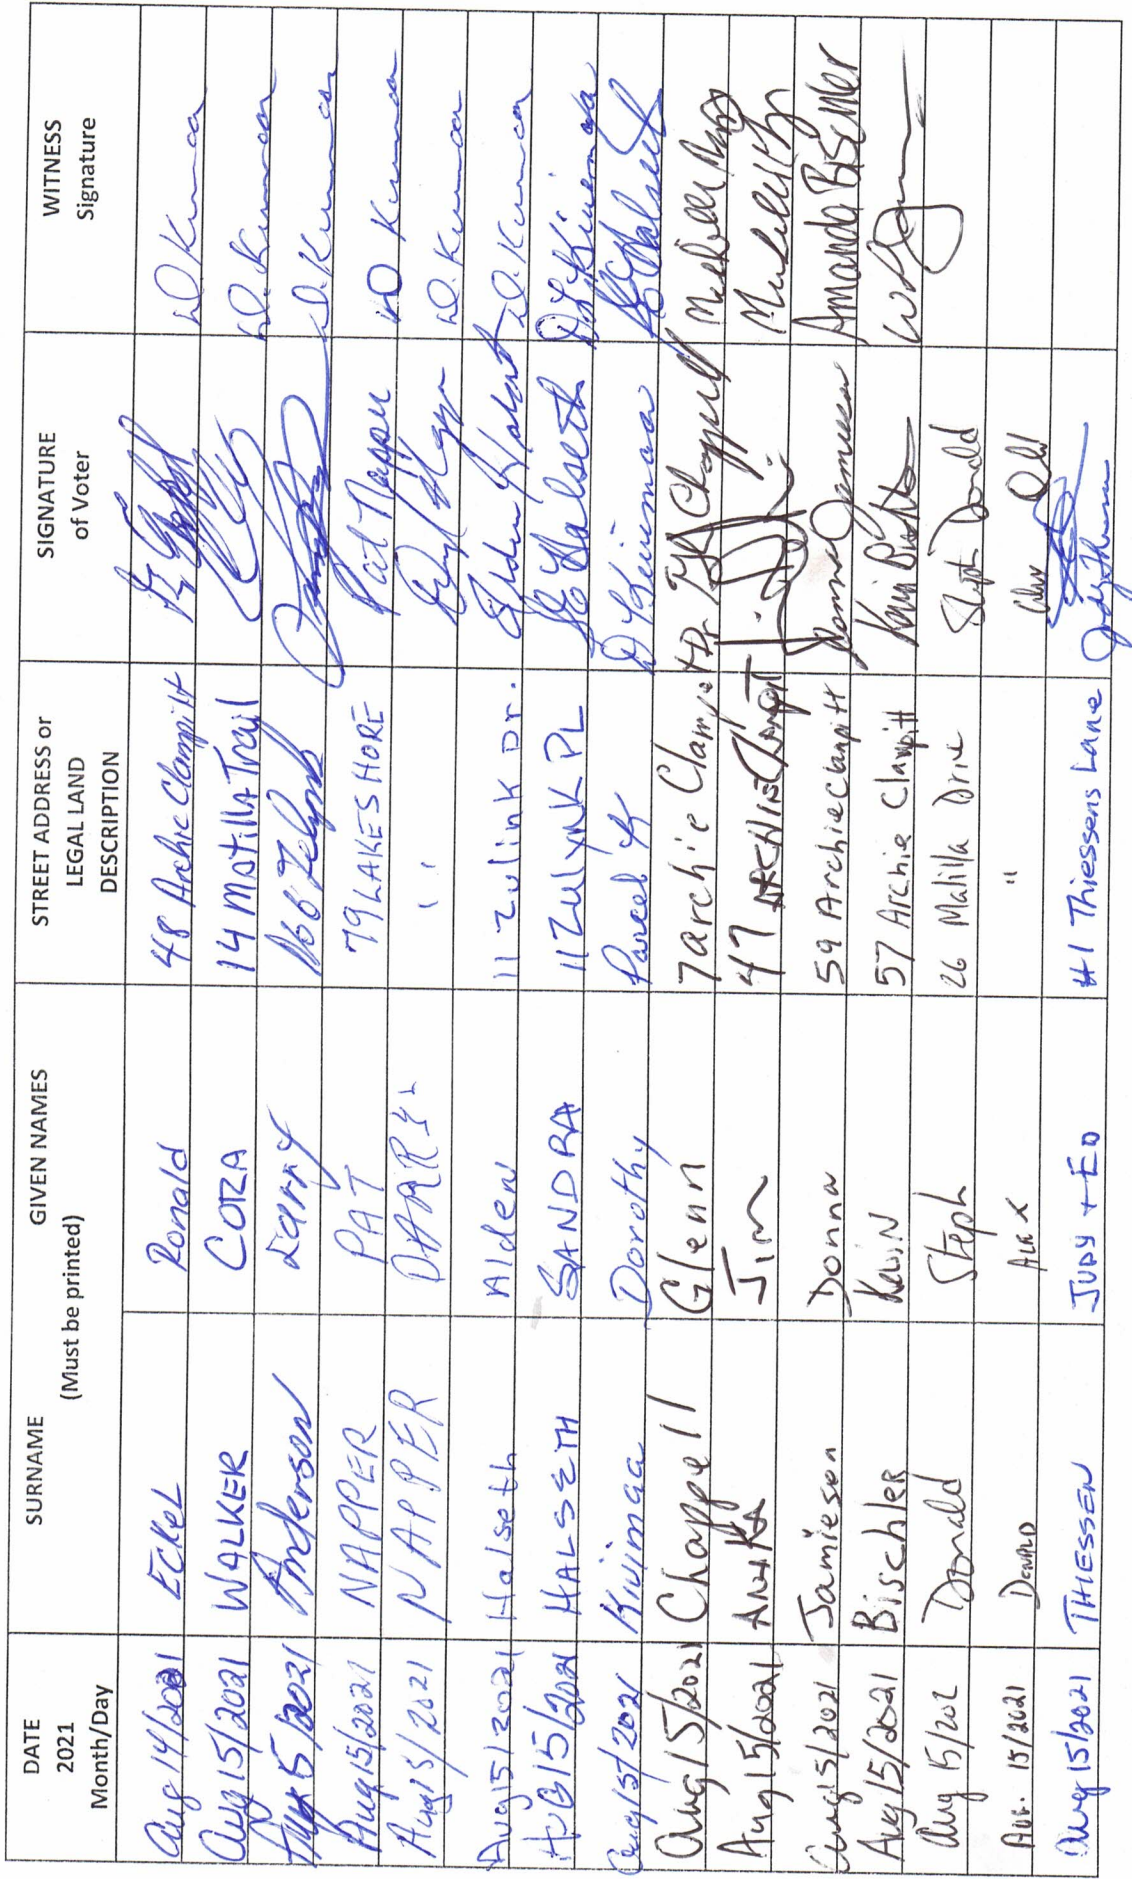 DATE 2021 Month/Day SURNAME GIVEN NAMES (Must be printed) STREET ADDRESS or LEGAL LAND DESCRIPTION SIGNATURE of Voter WITNESS Signature
Aug 14/2021 Eckel Ronald 48 Archie Clampitt D. Kumar
Aug 15/2021 WALKER CORA 14 Motilla Trail D. Kumar
Aug 15/2021 Anderson Larry D. Kumar
Aug 15/2021 NAPPER PAT 79 LAKESHORE Pat Napper D Kumar
Aug 15/2021 NAPPER DARRYL " D. Kumar
Aug 15/2021 Halseth Alden 11 Zulink Dr. Alden Halseth D. Kumar
AUG 15/2021 HALSETH SANDRA 11 ZulynK PL S Halseth
Aug 15/2021 Dorothy Parcel S Halseth
Aug 15/2021 Chappell Glenn 7 archie Clamp Chappell
Aug 15/2021 Jim 47 ARCHIE
Aug 15/2021 Jamieson Donna 59 Archie Clampitt Donna Jamieson Amanda BISCHLER
Aug 15/2021 Bischler Kelvin 57 Archie Clampitt
Aug 15/202 Donald Steph 26 Malilla Drive Steph Donald
AUG. 15/2021 DONALD ALEX " Alex
Aug 15/2021 THIESSEN JUDY + ED #1 Thiessens Lane Judy Thiessen